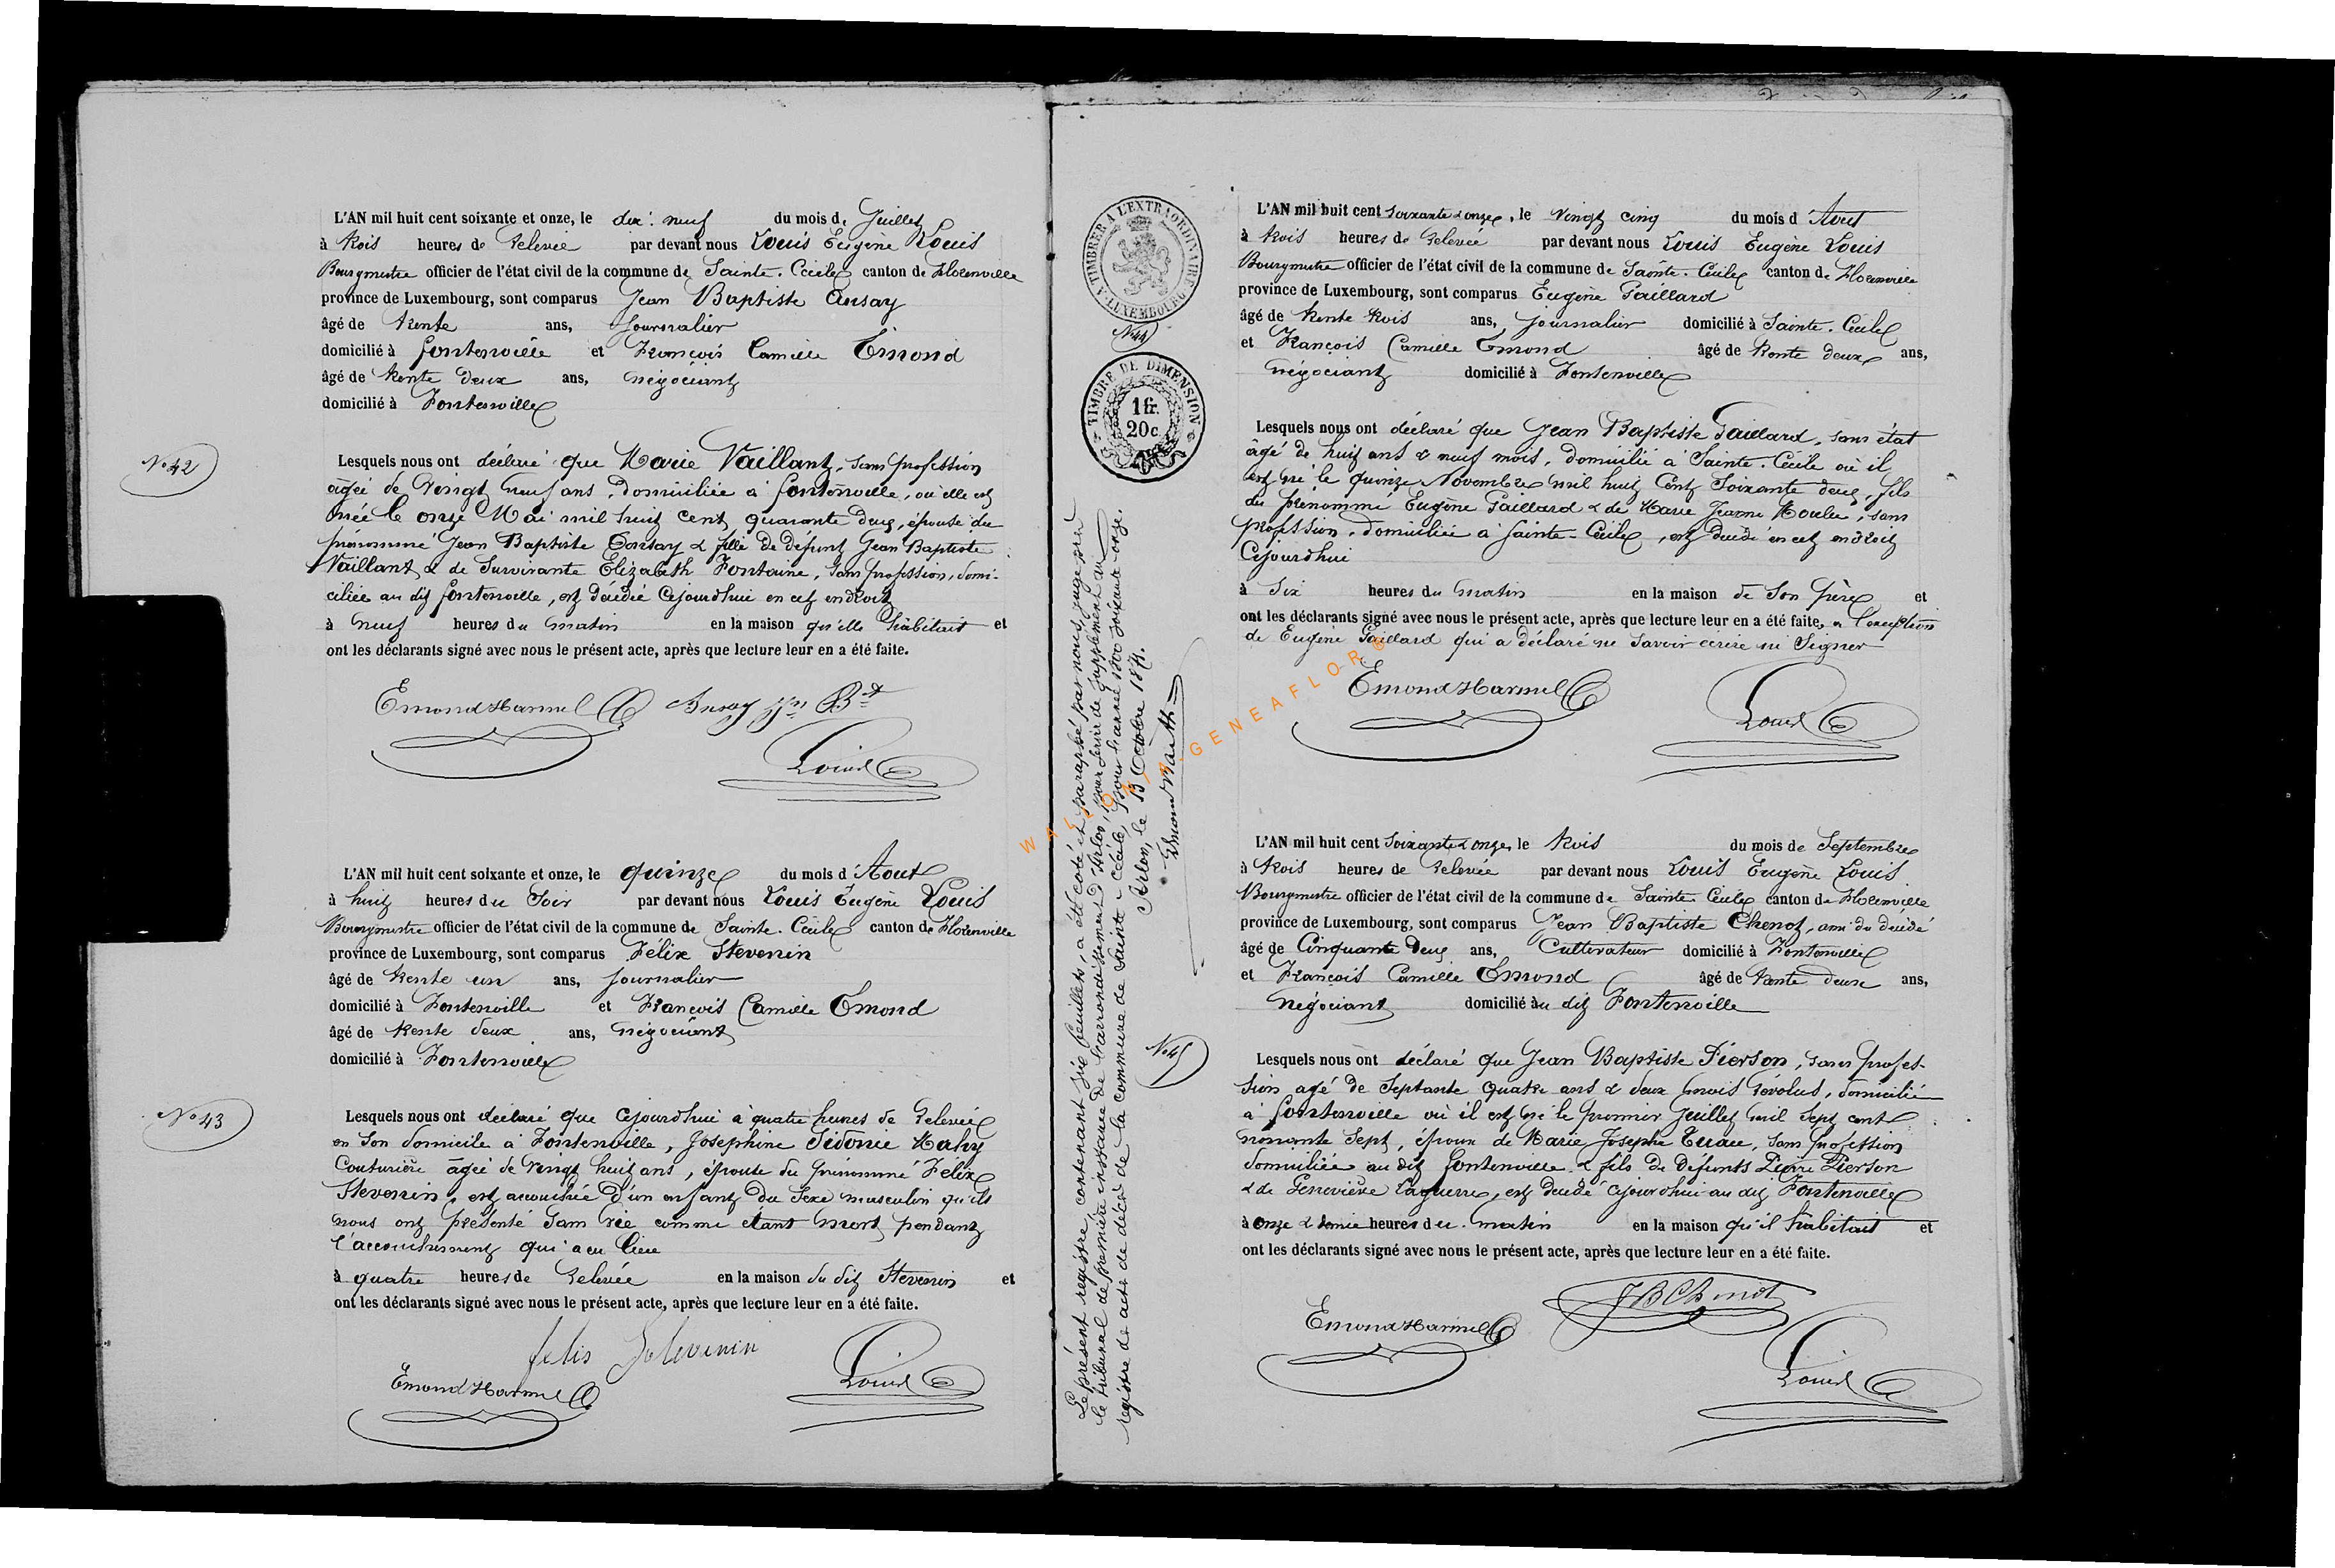 L'AN mil huit cent soixante et onze, le dix-neuf du mois de Juillet
à trois heures de relevée par devant nous Louis Eugène Louis
Bourgmestre officier de l'état civil de la commune de Sainte-Cécile canton de Florenville
province de Luxembourg, sont comparus Jean Baptiste Ansay
âgé de trente ans, journalier
domicilié à fontenoille et François Camille Emond
âgé de trente deux ans, négociant
domicilié à Fontenoille
N° 42
Lesquels nous ont déclaré que Marie Vaillant, sans profession
âgée de vingt neuf ans, domiciliée à fontenoille, où elle est
née le onze Mai mil huit cent quarante deux, épouse du
prénommé Jean Baptiste Ansay & fille de défunt Jean Baptiste
Vaillant & de survivante Elizabeth Fontaine, sans profession, domi-
ciliée au dit fontenoille, est décédée cejourd'hui en cet endroit
à neuf heures du matin en la maison qu'elle habitait et
ont les déclarants signé avec nous le présent acte, après que lecture leur en a été faite.
Emond Harmel Ansay Jn Bte
Louis
L'AN mil huit cent soixante et onze, le quinze du mois d'Aout
à huit heures du soir par devant nous Louis Eugène Louis
Bourgmestre officier de l'état civil de la commune de Sainte-Cécile canton de Florenville
province de Luxembourg, sont comparus Félix Stevenin
âgé de trente un ans, journalier
domicilié à Fontenoille et François Camille Emond
âgé de trente deux ans, négociant
domicilié à Fontenoille
N° 43
Lesquels nous ont déclaré que cejourd'hui à quatre heures de relevée
en son domicile à Fontenoille, Joséphine Sidonie Mahy
Couturière âgée de vingt huit ans, épouse du prénommé Félix
Stevenin, est accouchée d'un enfant du sexe masculin qu'ils
nous ont présenté sans vie comme étant mort pendant
l'accouchement qui a eu lieu
à quatre heures de relevée en la maison du dit Stevenin et
ont les déclarants signé avec nous le présent acte, après que lecture leur en a été faite.
felis Stevenin
Emond Harmel Louis
TIMBRER A L'EXTRAORDINAIRE LUXEMBOURG
N° 44
TIMBRE DE DIMENSION
1 fr.
20 c.
Le présent registre, contenant six feuillets, a été coté et paraphé par nous, juge près
le tribunal de première instance de l'arrondissement d'Arlon, pour servir de supplément au
registre des actes de décès de la commune de Sainte-Cécile, pour l'année 1800 soixante-onze.
Arlon, le 13 Octobre 1871.
WALLONIA-GENEAFLOR ®
L'AN mil huit cent soixante & onze, le vingt cinq du mois d'Aout
à trois heures de relevée par devant nous Louis Eugène Louis
Bourgmestre officier de l'état civil de la commune de Sainte-Cécile canton de Florenville
province de Luxembourg, sont comparus Eugène Gaillard
âgé de trente trois ans, journalier domicilié à Sainte-Cécile
et François Camille Emond âgé de trente deux ans,
négociant domicilié à Fontenoille
Lesquels nous ont déclaré que Jean Baptiste Gaillard, sans état
âgé de huit ans & neuf mois, domicilié à Sainte-Cécile où il
est né le quinze Novembre mil huit cent soixante deux, fils
du prénommé Eugène Gaillard & de Marie Jeanne, sans
profession, domiciliée à Sainte-Cécile, est décédé en cet endroit
Cejourd'hui
à six heures du matin en la maison de son père et
ont les déclarants signé avec nous le présent acte, après que lecture leur en a été faite, à l'exception
de Eugène Gaillard qui a déclaré ne savoir écrire ni signer
Emond Harmel Louis
L'AN mil huit cent soixante & onze, le trois du mois de Septembre
à trois heures de relevée par devant nous Louis Eugène Louis
Bourgmestre officier de l'état civil de la commune de Sainte-Cécile canton de Florenville
province de Luxembourg, sont comparus Jean Baptiste Chenot, ami du décédé
âgé de Cinquante deux ans, Cultivateur domicilié à Fontenoille
et François Camille Emond âgé de trente deux ans,
négociant domicilié au dit Fontenoille
N° 45
Lesquels nous ont déclaré que Jean Baptiste Pierson, sans profes-
sion, agé de septante quatre ans & deux mois révolus, domicilié
à fontenoille où il est né le premier Juillet mil sept cent
nonante sept, époux de Marie Josephe, sans profession
domiciliée au dit fontenoille & fils de défunts Pierre Pierson
& de Geneviève Laguerre, est décédé cejourd'hui au dit Fontenoille
à onze & demie heures du matin en la maison qu'il habitait et
ont les déclarants signé avec nous le présent acte, après que lecture leur en a été faite.
J B Chenot
Emond Harmel
Louis